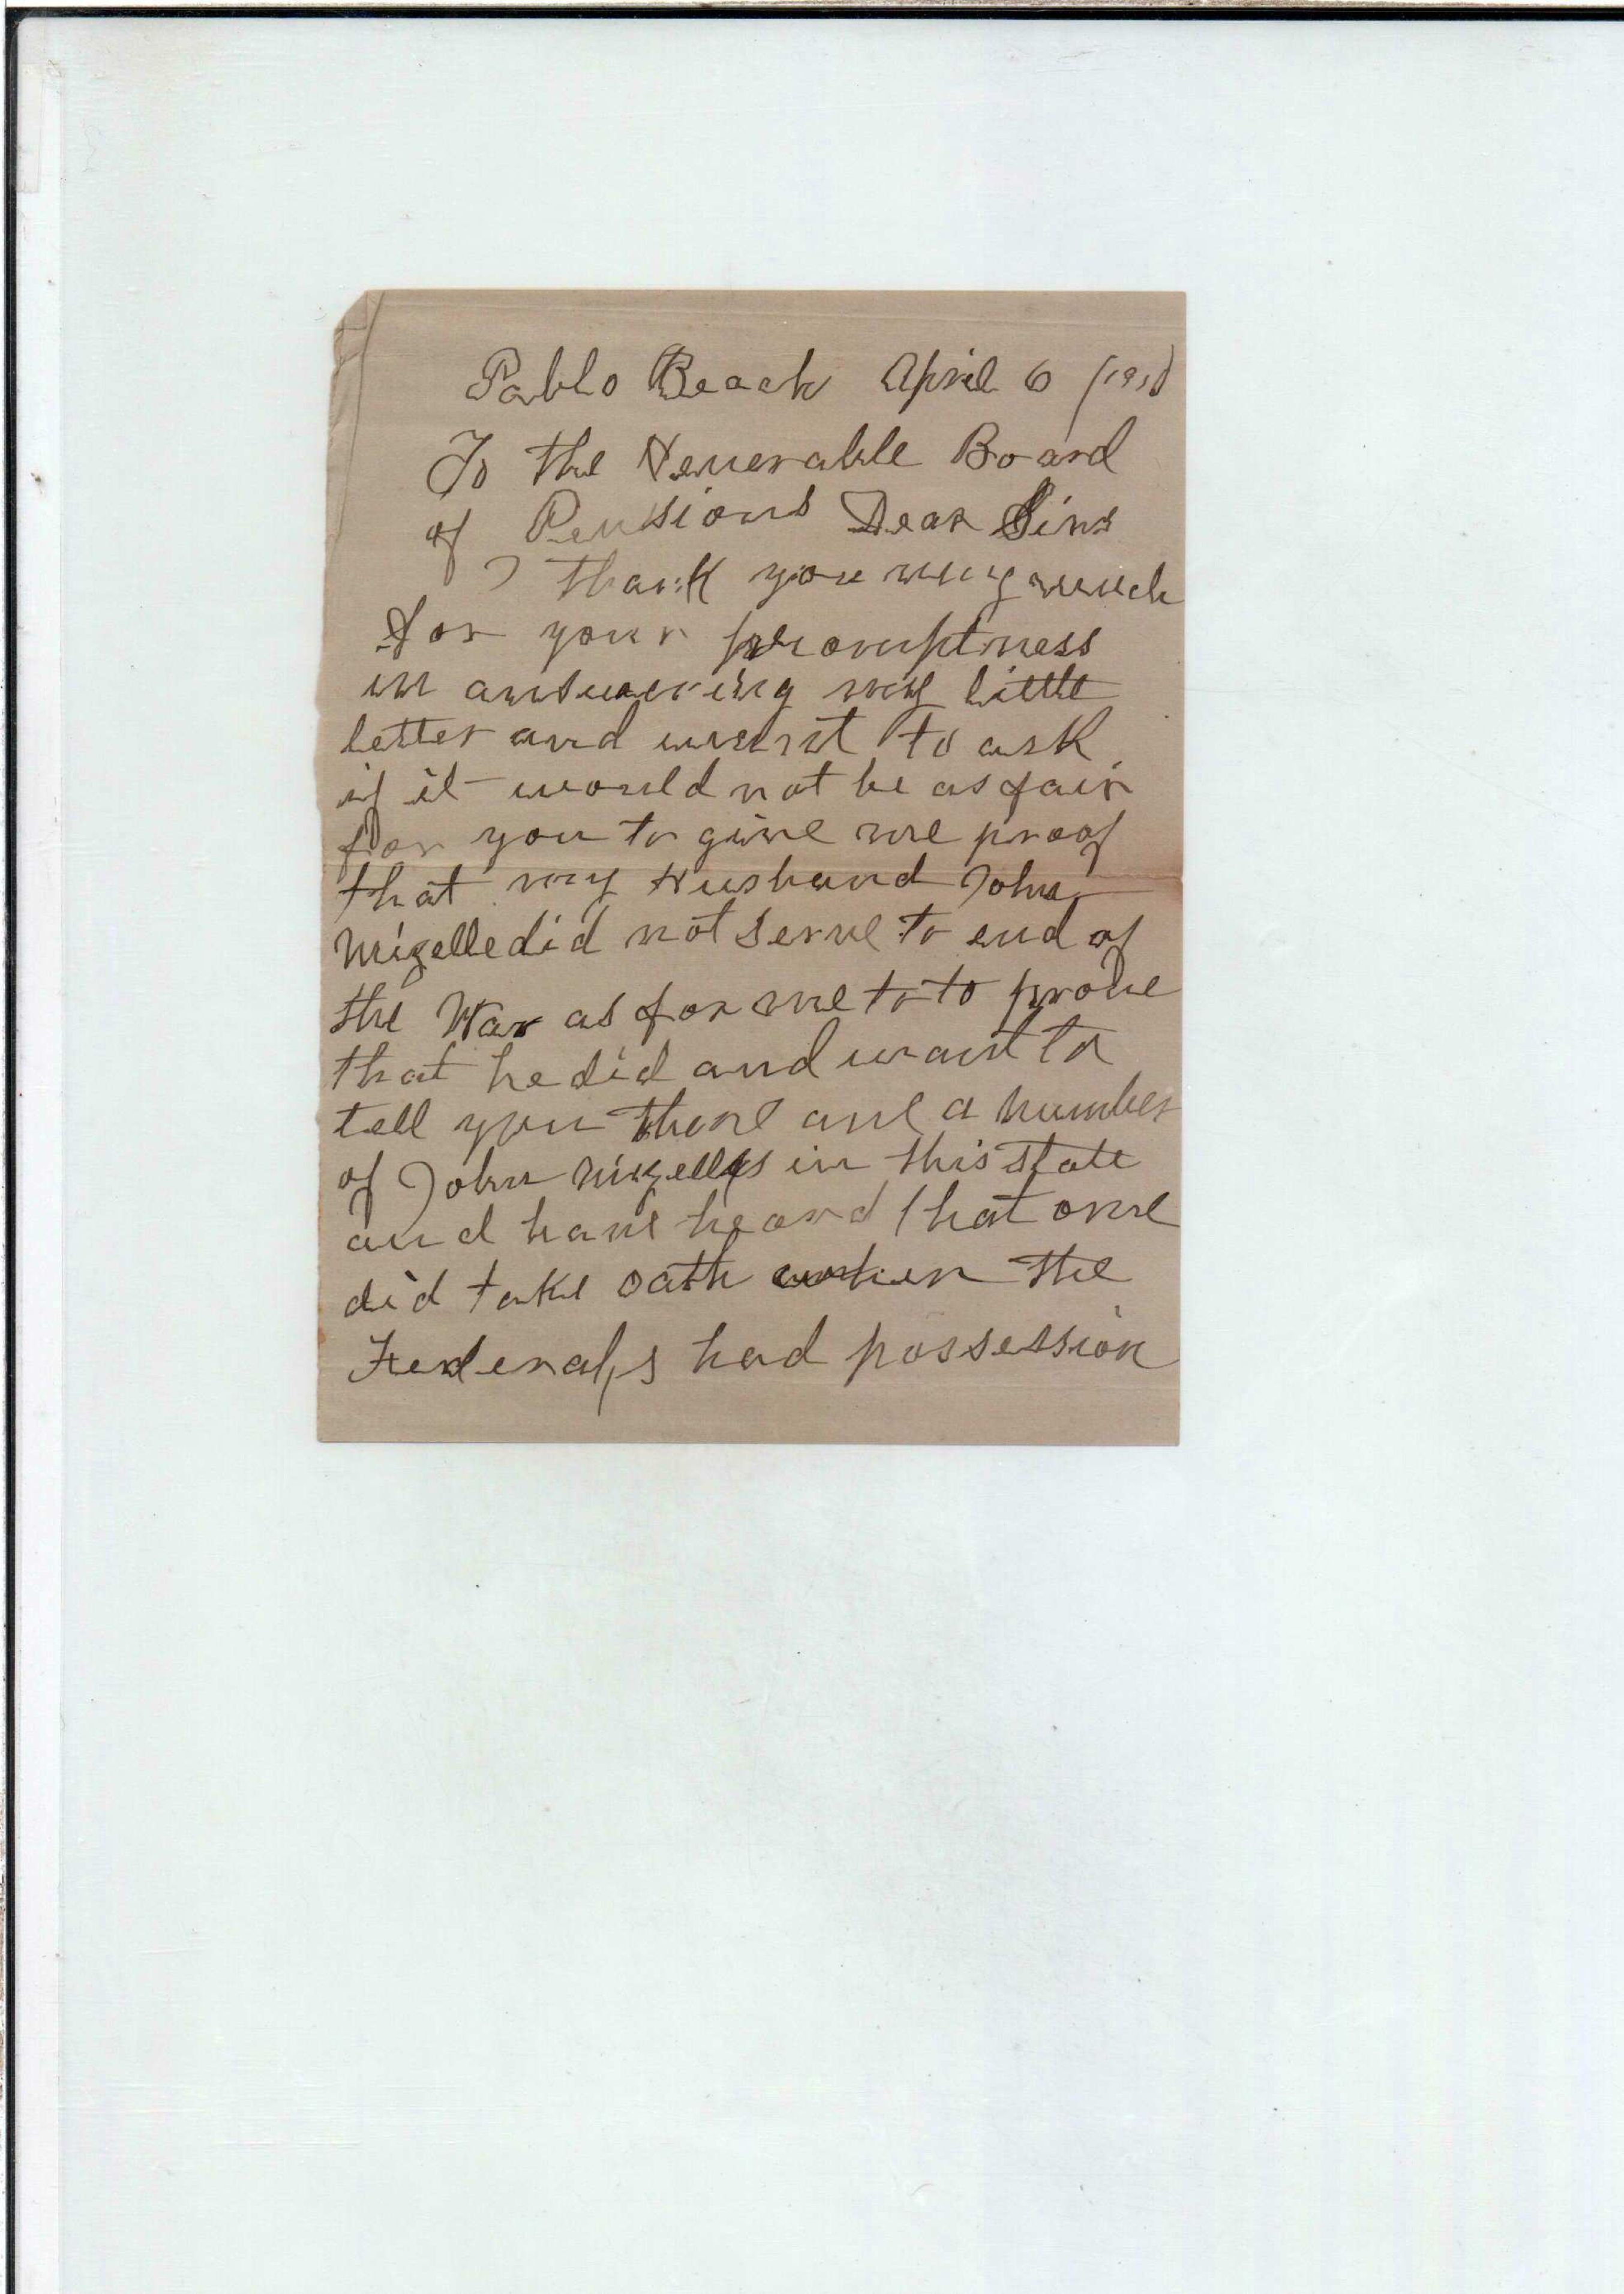 Pablo Beach April 6
To the Venerable Board
of Pensions Dear Sirs
I thank you very much
for your promptness
in answering my little
letter and want to ask
if it would not be as fair
for you to give me proof
that my Husband John
Mizelle did not serve to end of
the War as for me to to prove
that he did and want to
tell you there are a number
of John Mizells in this state
and have heard that one
did take oath when the
Federals had possession